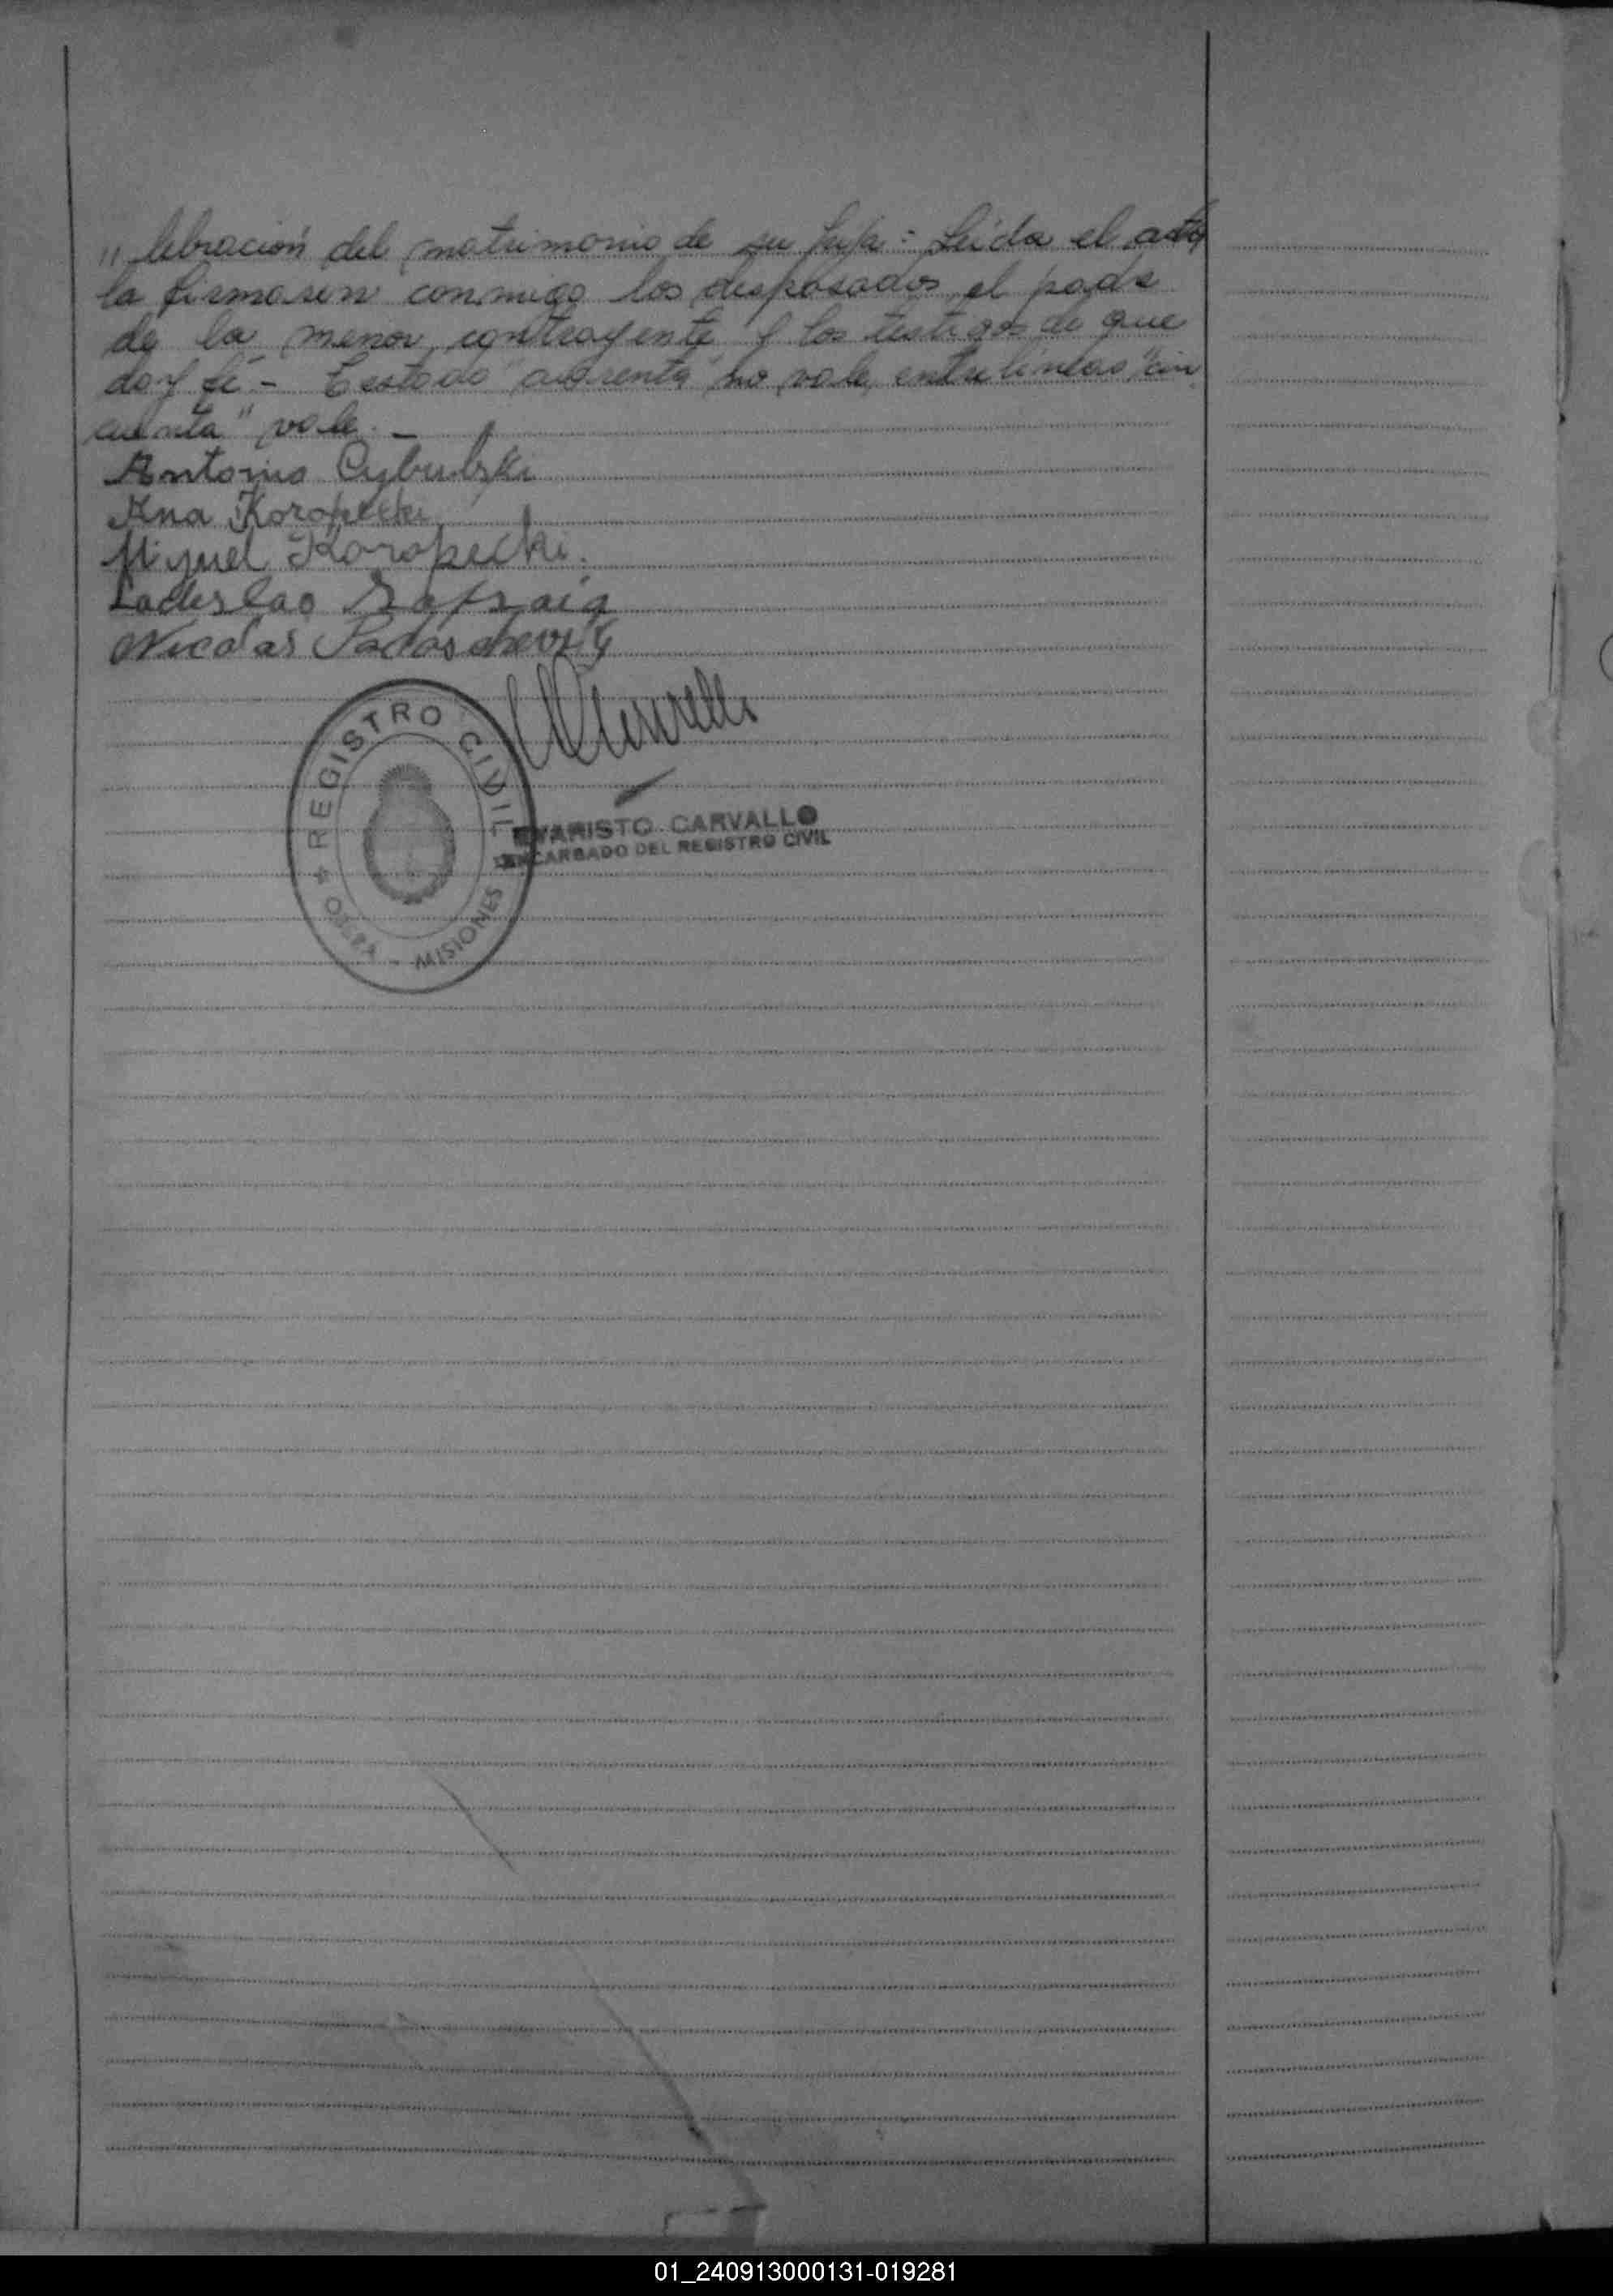 " lebración del matrimonio de su hija : Leida el acta
la firmaron conmigo los desposados, el padre
de la menor contrayente y los testigos de que
doy fé. - Testado "cuarenta" no vale, entre lineas "cin
cuenta" vale. -
Antonio Cybulski
Ana Koropecki
Miguel Koropecki.
Ladislao
Nicolas
REGISTRO CIVIL
OBERÁ - MISIONES
EVARISTO CARVALLO
ENCARGADO DEL REGISTRO CIVIL
01_240913000131-019281